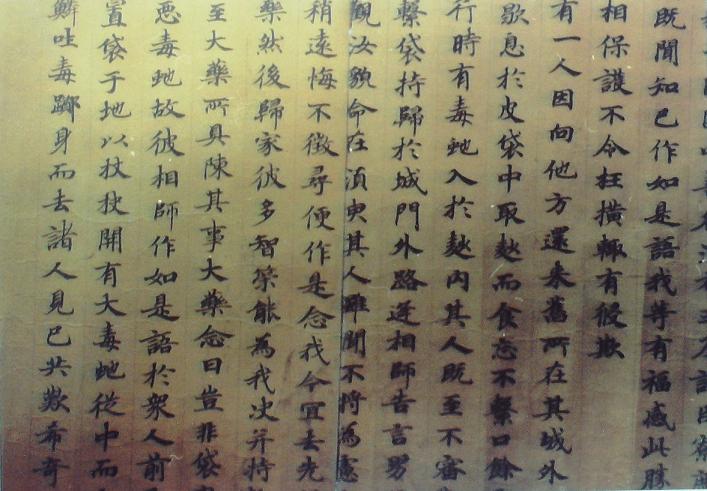 既聞知已作如是語我等有福感此勝
相保護不令枉撗輙有侵欺
有一人因向他方還来舊所在其城外
歇息於皮袋中取麨而食忘不繫口餘
行時有毒虵入於麨内其人既至不審
繫袋持歸於城門外路逢相師告言男
觀汝貌命在湏臾其人雖聞不将為憲
稍遠悔不徵尋便作是念我今宜去先
藥然後歸家彼多智筞能為我决并持
至大藥所具陳其事大藥念曰豈非袋
惡毒虵故彼相師作如是語於衆人前
置袋于地以杖抉開有大毒虵從中而
吐毒躑身而去諸人見已共歎希奇